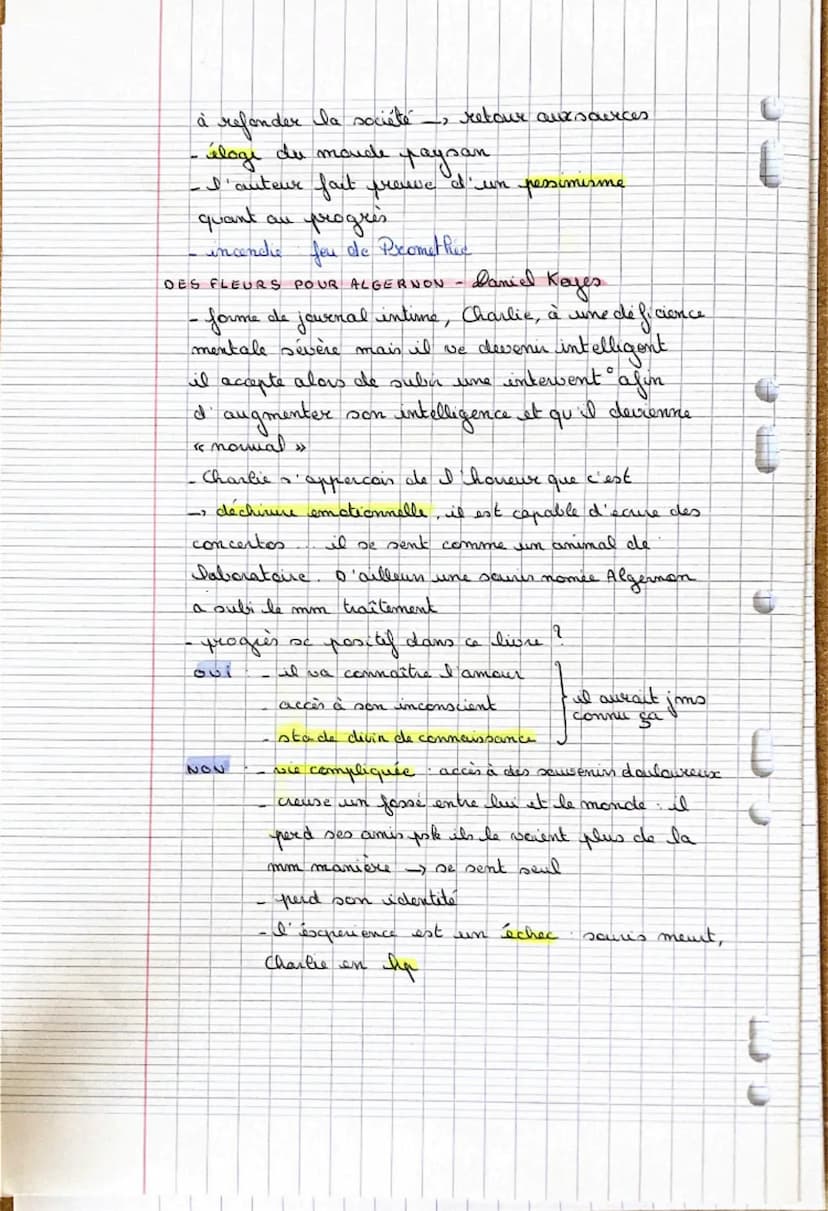 à refonder la société → retour aux sources
- élogi du monde paysan
- l'auteur fait preuve d'un pessimisme
quant au progrès
- incendie feu de Promethée
DES FLEURS POUR ALGERNON - Daniel Keyes
- forme de journal intime, Charlie, à une déficience
mentale sévère mais il ve devenir intelligent
il accepte alors de subir une intervent° afin
d'augmenter son intelligence et qu'il devienne
« normal »
- Charlie s'apperçois de l'horreur que c'est
→ déchirure emotionnelle, il est capable d'écrire des
concertos ... il se sent comme un animal de
laboratoire. D'ailleurs une souris nomée Algernon
a subi le mm traîtement
- progrès sc positif dans ce livre ?
OUI : - il va connaître l'amour
- accès à son inconscient
- stade divin de connaissance
il aurait jms
connu ça
NON : - vie compliquée : accès à des souvenirs douloureux
- creuse un fossé entre lui et le monde : il
perd ses amis psk ils le voient plus de la
mm manière → se sent seul
- perd son identité
- l'éxperience est un échec : souris meurt,
Charlie en hp